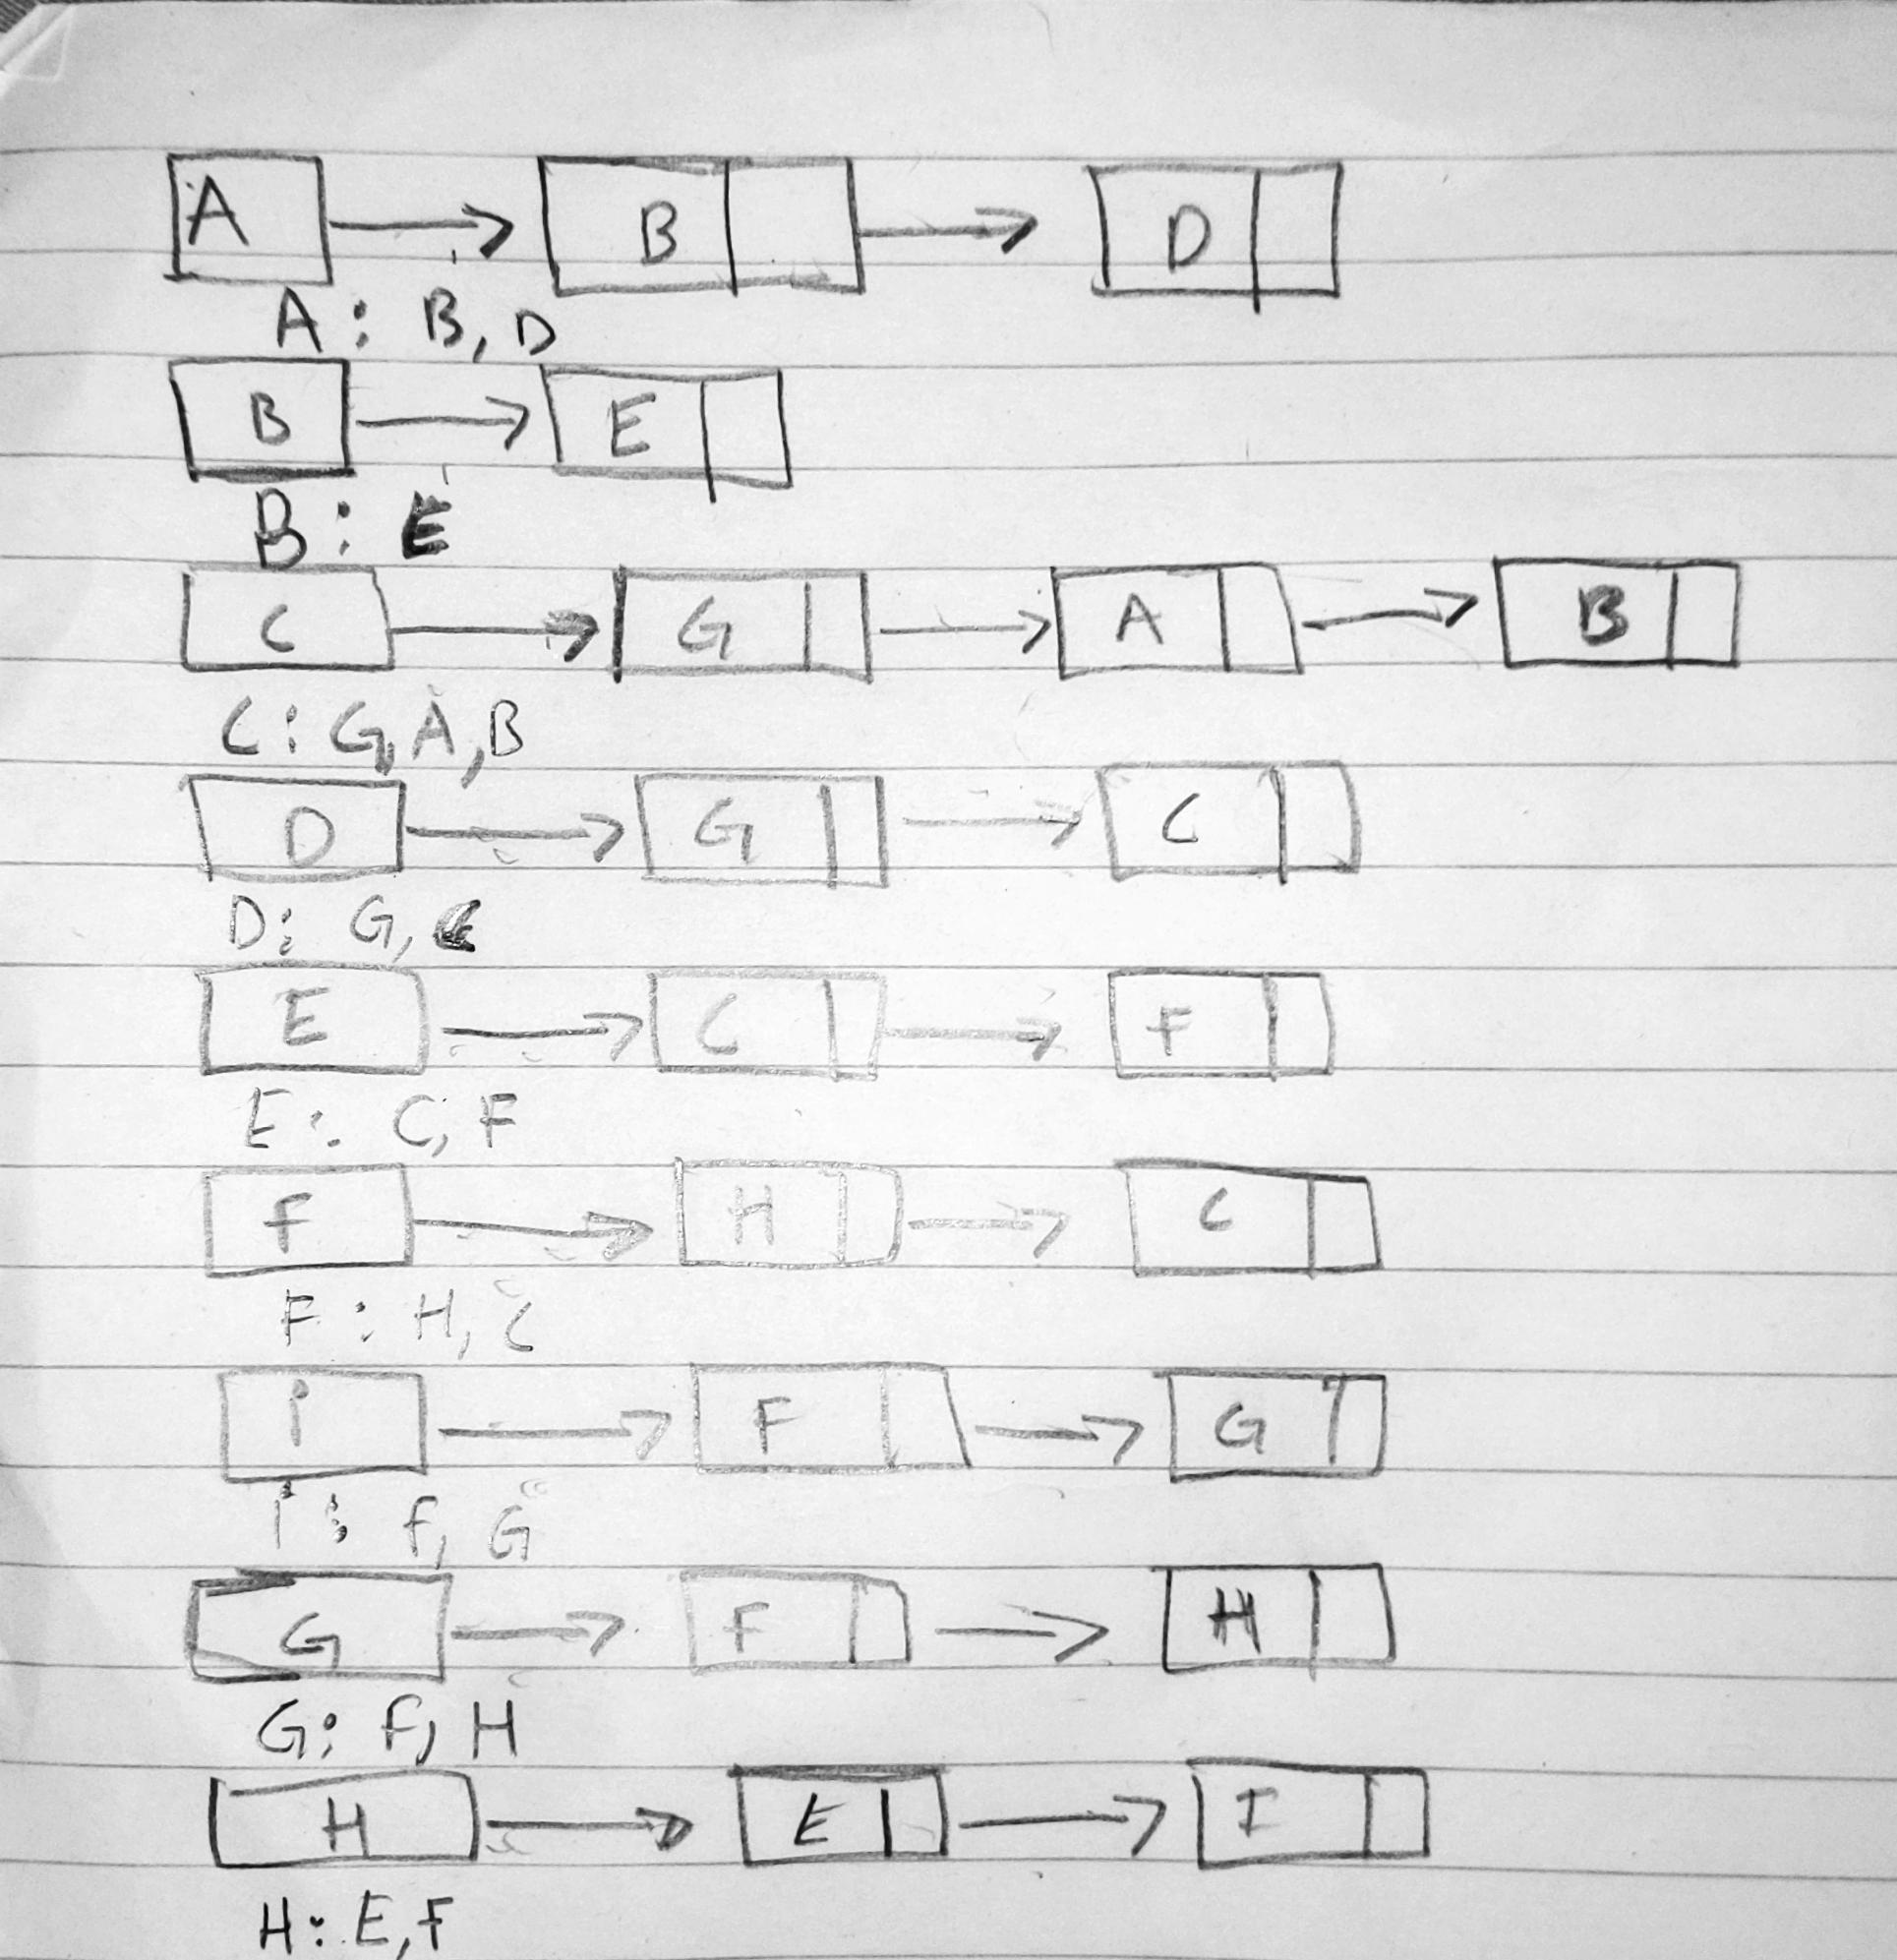 A B D
A: B, D
B E
B: E
C G A B
C: G, A, B
D G C
D: G, C
E C F
E: C, F
F H C
F: H, C
i F G
i: f, G
G F H
G: f, H
H E I
H: E, F